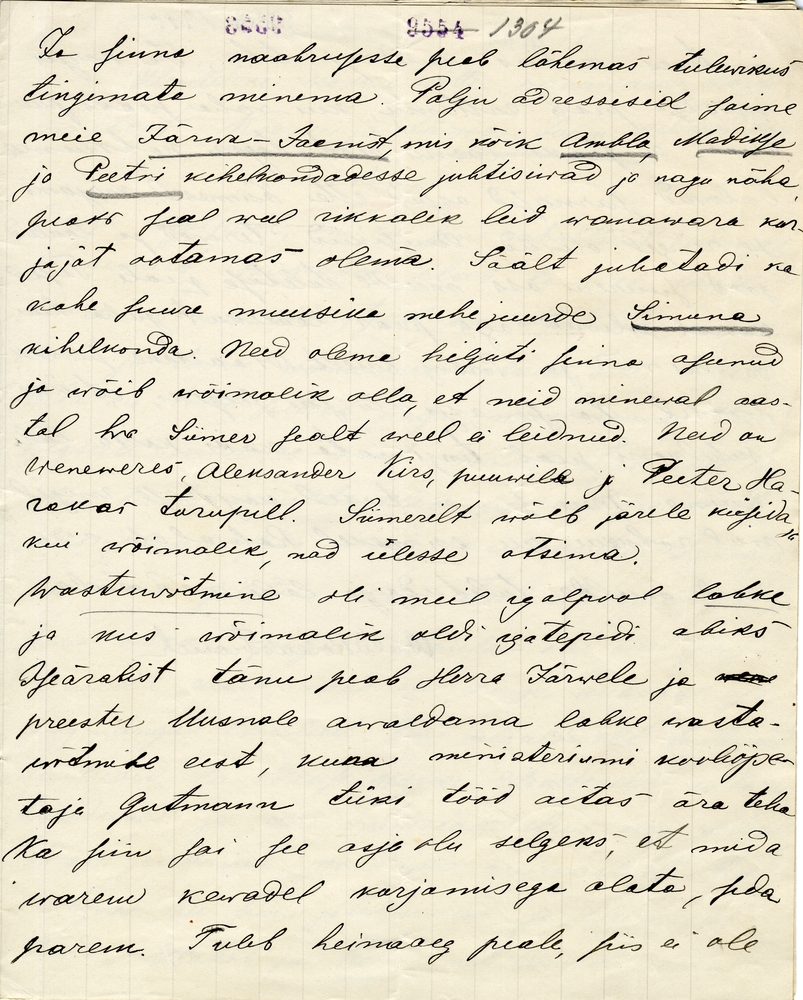 9554 1304
Ja sinna naabrusesse peab lähemas tulewikus
tingimata minema. Palju adressisid saime
meie Järwa-Jaanist, mis kõik Ambla, Madikse
ja Peetri kihelkondadesse juhtisiwad ja nagu näha,
peaks seal weel rikkalik leid wanawara kor-
jajat ootamas olema. Säält juhatadi ka
kahe suure muusika mehe juurde Simuna
kihelkonda. Need olema hiljuti sinna asunud
ja wõib wõimalik olla, et neid minewal aas-
tal hra Siimer sealt weel ei leidnud. Need on
Weneweres, Aleksander Kirs, puuwill ja Peeter Ha-
rakas torupill. Siimerilt wõib järele küsida ja
kui wõimalik, nad ülesse otsima.
Wastuwõtmine oli meil igalpool lahke
ja kus wõimalik oldi igatepidi abiks
Iseäralist tänu peab Herra Järwele ja
preester Uusnale awaldama lahke wasta-
wõtmise eest, kuna ministeriumi kooliõpe-
taja Gutmann tüki tööd aitas ära teha
Ka siin sai see asja olu selgeks, et mida
warem kewadel korjamisega alata, seda
parem. Tuleb heinaaeg peale, siis ei ole